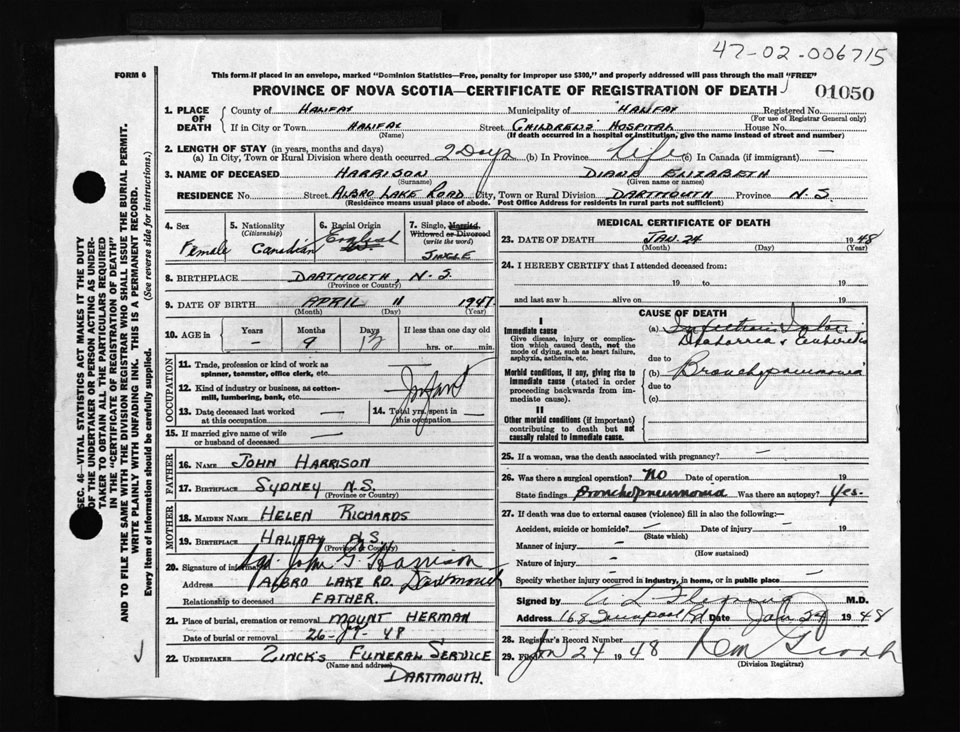 47-02-006715
FORM 6
This form if placed in an envelope, marked "Dominion Statistics—Free, penalty for improper use $300," and properly addressed will pass through the mail "FREE"
PROVINCE OF NOVA SCOTIA—CERTIFICATE OF REGISTRATION OF DEATH
01050
1. PLACE OF DEATH
County of HALIFAX Municipality of HALIFAX Registered No.
(For use of Registrar General only)
If in City or Town HALIFAX Street CHILDREN'S HOSPITAL House No.
(Name) (If death occurred in a hospital or institution, give the name instead of street and number)
2. LENGTH OF STAY (in years, months and days)
(a) In City, Town or Rural Division where death occurred 2 Days (b) In Province Life (c) In Canada (if immigrant) —
3. NAME OF DECEASED HARRISON DIANE ELIZABETH
(Surname) (Given name or names)
RESIDENCE No. Street ALBRO LAKE ROAD City, Town or Rural Division DARTMOUTH Province N.S.
(Residence means usual place of abode. Post Office Address for residents in rural parts not sufficient)
4. Sex Female
5. Nationality (Citizenship) Canadian
6. Racial Origin English
7. Single, Married, Widowed or Divorced (write the word) SINGLE
8. BIRTHPLACE DARTMOUTH, N.S.
(Province or Country)
9. DATE OF BIRTH APRIL 11 1947
(Month) (Day) (Year)
10. AGE in Years Months Days If less than one day old
— 9 13 hrs. or min.
OCCUPATION
11. Trade, profession or kind of work as spinner, teamster, office clerk, etc.
12. Kind of industry or business, as cotton-mill, lumbering, bank, etc.
Infant
13. Date deceased last worked at this occupation —
14. Total yrs. spent in this occupation
15. If married give name of wife or husband of deceased —
FATHER
16. NAME JOHN HARRISON
17. BIRTHPLACE SYDNEY N.S.
(Province or Country)
MOTHER
18. MAIDEN NAME HELEN RICHARDS
19. BIRTHPLACE HALIFAX N.S.
(Province or Country)
20. Signature of informant Sgd. John G. Harrison
Address ALBRO LAKE RD. Dartmouth
Relationship to deceased FATHER.
21. Place of burial, cremation or removal MOUNT HERMAN
Date of burial or removal 26 - 48
22. UNDERTAKER ZINCK'S FUNERAL SERVICE
(Name and address)
DARTMOUTH.
MEDICAL CERTIFICATE OF DEATH
23. DATE OF DEATH JAN. 24 1948
(Month) (Day) (Year)
24. I HEREBY CERTIFY that I attended deceased from:
19 to 19
and last saw h alive on 19
CAUSE OF DEATH
I
Immediate cause
Give disease, injury or complication which caused death, not the mode of dying, such as heart failure, asphyxia, asthenia, etc.
(a) Infectious
Diahorrea &
due to
Morbid conditions, if any, giving rise to immediate cause (stated in order proceeding backwards from immediate cause).
(b) Bronchopneumonia
due to
(c)
II
Other morbid conditions (if important) contributing to death but not causally related to immediate cause.
25. If a woman, was the death associated with pregnancy? —
26. Was there a surgical operation? NO Date of operation 19
State findings Bronchopneumonia Was there an autopsy? Yes.
27. If death was due to external causes (violence) fill in also the following:—
Accident, suicide or homicide? — Date of injury — 19
(State which)
Manner of injury —
(How sustained)
Nature of injury —
Specify whether injury occurred in industry, in home, or in public place —
Signed by M.D.
Address 168 Date Jan 24 1948
28. Registrar's Record Number
29. Filed Jan 24 1948
(Division Registrar)
SEC. 46—VITAL STATISTICS ACT MAKES IT THE DUTY OF THE UNDERTAKER OR PERSON ACTING AS UNDERTAKER TO OBTAIN ALL THE PARTICULARS REQUIRED IN THE "CERTIFICATE OF REGISTRATION OF DEATH" AND TO FILE THE SAME WITH THE DIVISION REGISTRAR WHO SHALL ISSUE THE BURIAL PERMIT.
WRITE PLAINLY WITH UNFADING INK. THIS IS A PERMANENT RECORD.
Every item of information should be carefully supplied. (See reverse side for instructions.)